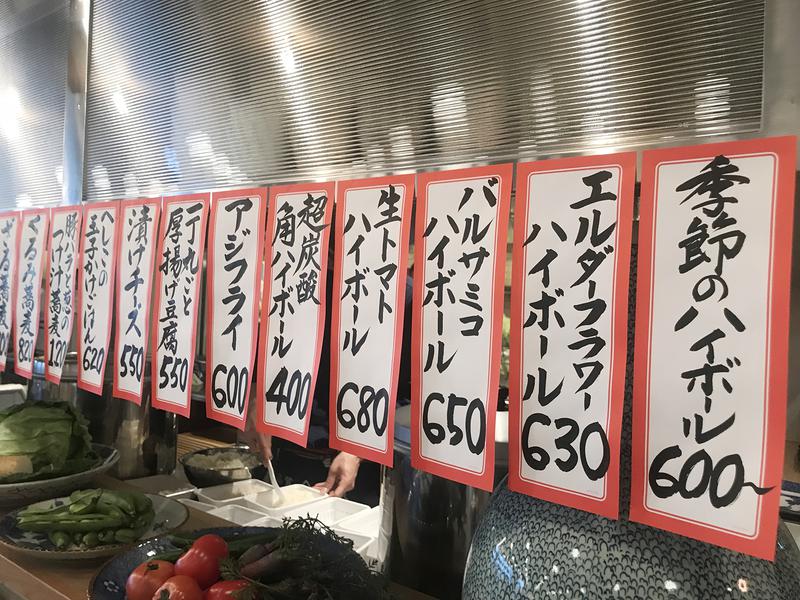 季節の
ハイボール
600〜
エルダーフラワー
ハイボール
630
バルサミコ
ハイボール
650
生トマト
ハイボール
680
超炭酸
角ハイボール
400
アジフライ
600
一丁丸ごと
厚揚げ豆腐
550
漬けチーズ
550
へしこの
玉子かけごはん
620
豚バラと葱の
つけ汁蕎麦
くるみ蕎麦
ざる蕎麦